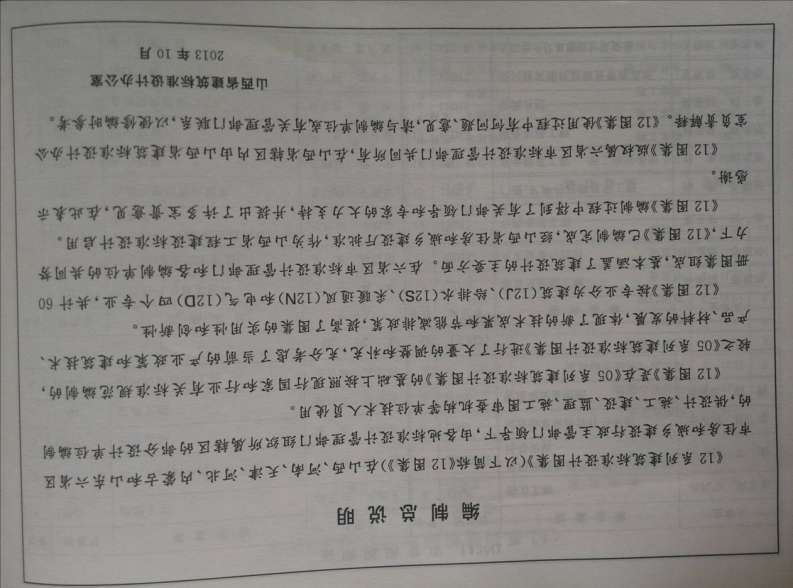 编制总说明
《12系列建筑标准设计图集》(以下简称《12图集》)在山西、河南、天津、河北、内蒙古和山东六省区
市住房和城乡建设行政主管部门领导下,由各地标准设计管理部门组织所属辖区的部分设计单位编制
的,供设计、施工、建设、监理、施工图审查机构等单位技术人员使用。
《12图集》是在《05系列建筑标准设计图集》的基础上按照现行国家和行业有关标准规范编制的,
较之《05系列建筑标准设计图集》进行了大量的调整和补充,充分考虑了当前的产业政策和建筑技术、
产品、材料的发展,体现了新的技术成果和节能减排政策,提高了图集的实用性和创新性。
《12图集》按专业分为建筑(12J)、给排水(12S)、采暖通风(12N)和电气(12D)四个专业,共计60
册图集组成,基本涵盖了建筑设计的主要方面。在六省区市标准设计管理部门和各编制单位的共同努
力下,《12图集》已编制完成,经山西省住房和城乡建设厅批准,作为山西省工程建设标准设计启用。
《12图集》编制过程中得到了有关部门领导和专家的大力支持,并提出了许多宝贵意见,在此表示
感谢。
《12图集》版权属六省区市标准设计管理部门共同所有,在山西省辖区内由山西省建筑标准设计办公
室负责解释。《12图集》使用过程中有何问题、意见,请与编制单位或有关管理部门联系,以便修编时参考。
山西省建筑标准设计办公室
2013年10月